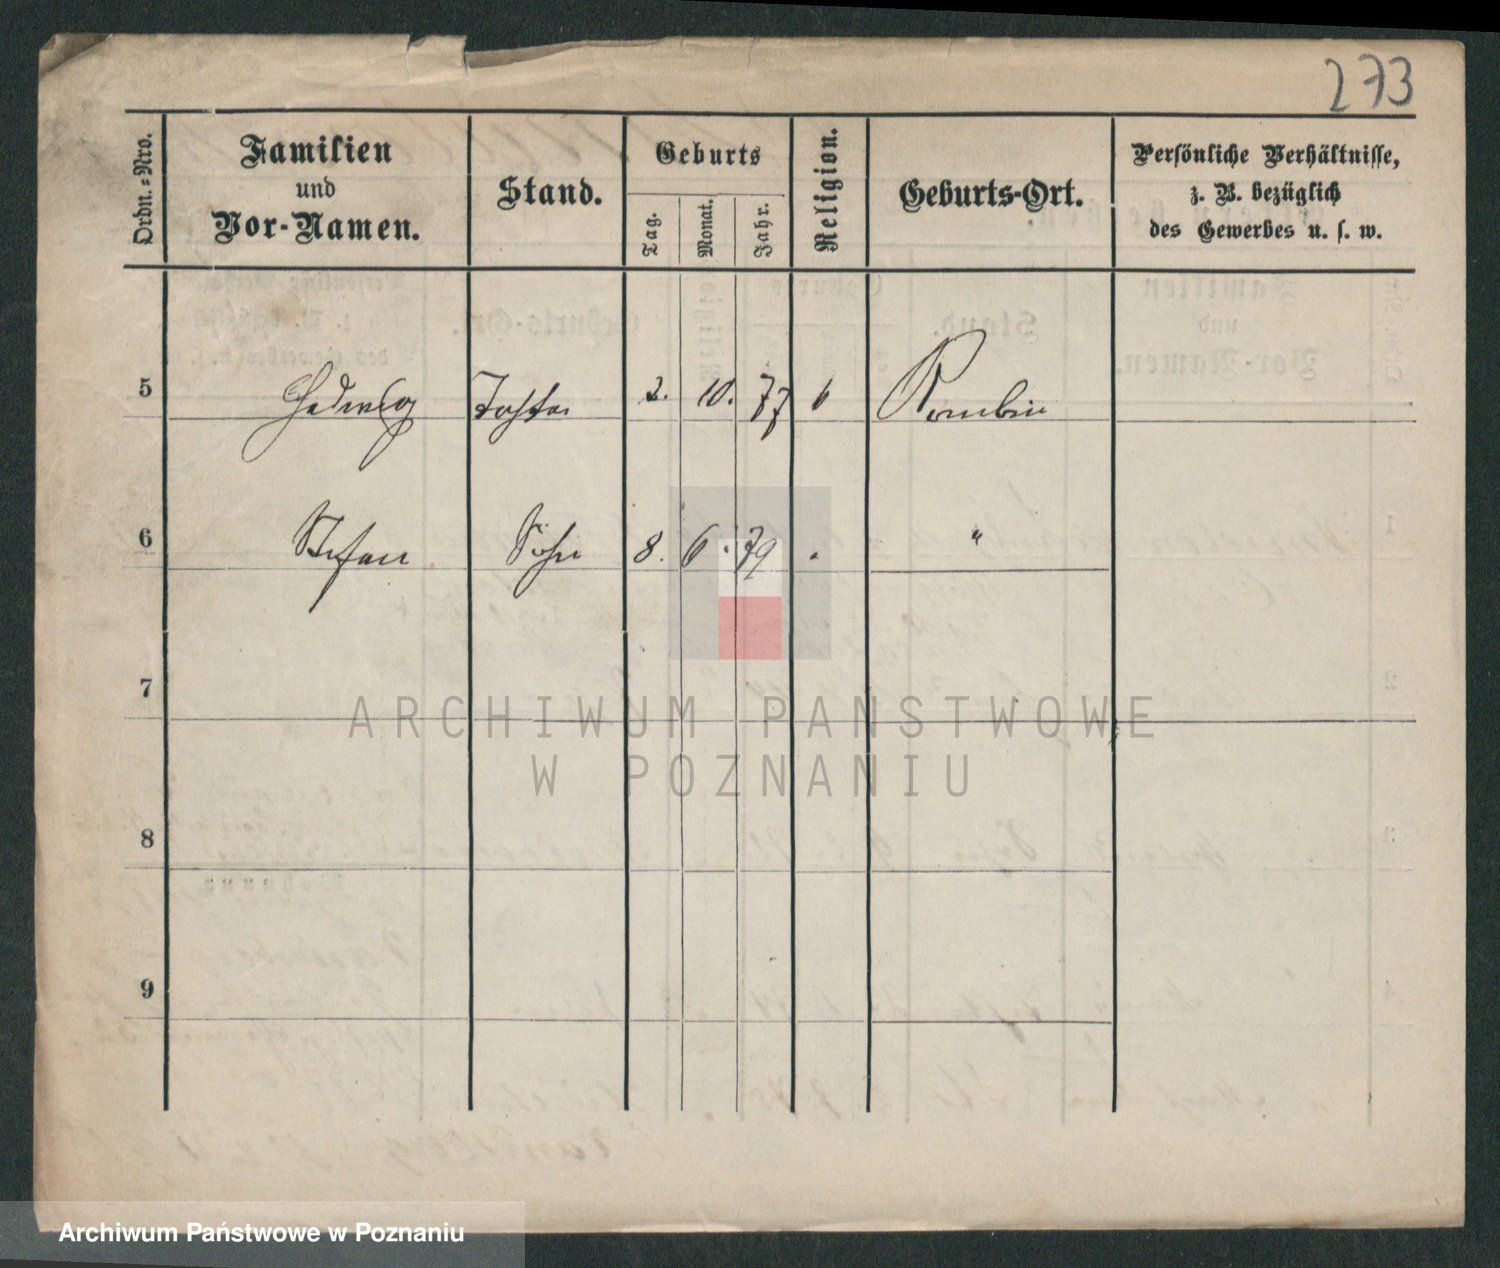 273
Ordn.-Nro.
Familien
und
Vor-Namen.
Stand.
Geburts
Tag.
Monat.
Jahr.
Religion.
Geburts-Ort.
Persönliche Verhältnisse,
z. B. bezüglich
des Gewerbes u. s. w.
5 Hedwig Tochter 2. 10. 77
6 Stefan Sohn 8. 6. 79 "
7
8
9
ARCHIWUM PAŃSTWOWE
W POZNANIU
Archiwum Państwowe w Poznaniu